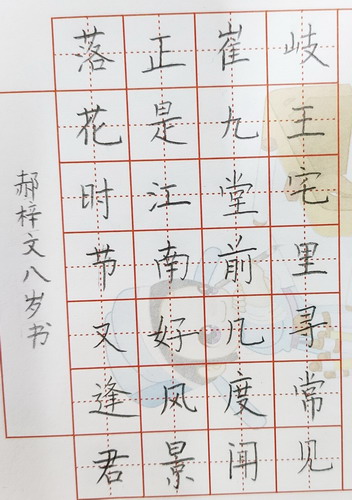 岐王宅里寻常见
崔九堂前几度闻
正是江南好风景
落花时节又逢君
郝梓文八岁书